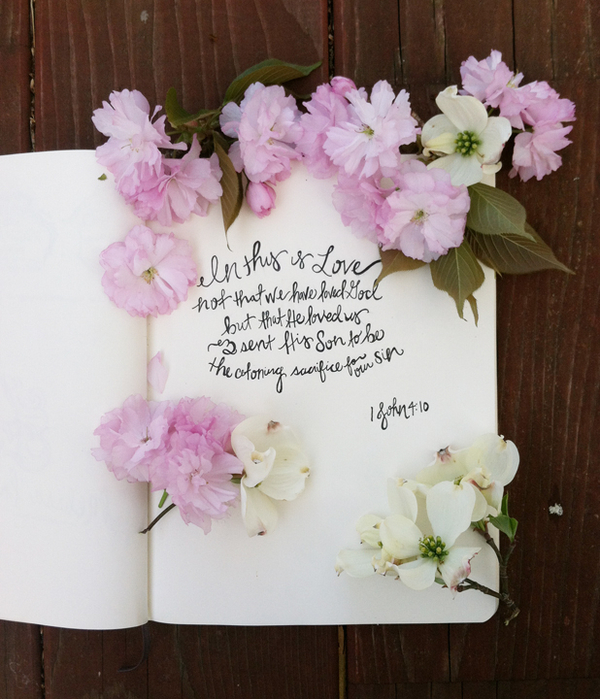 In this is Love
not that we have loved God
but that He loved us
& sent His Son to be
the atoning sacrifice for our sin
1 John 4:10